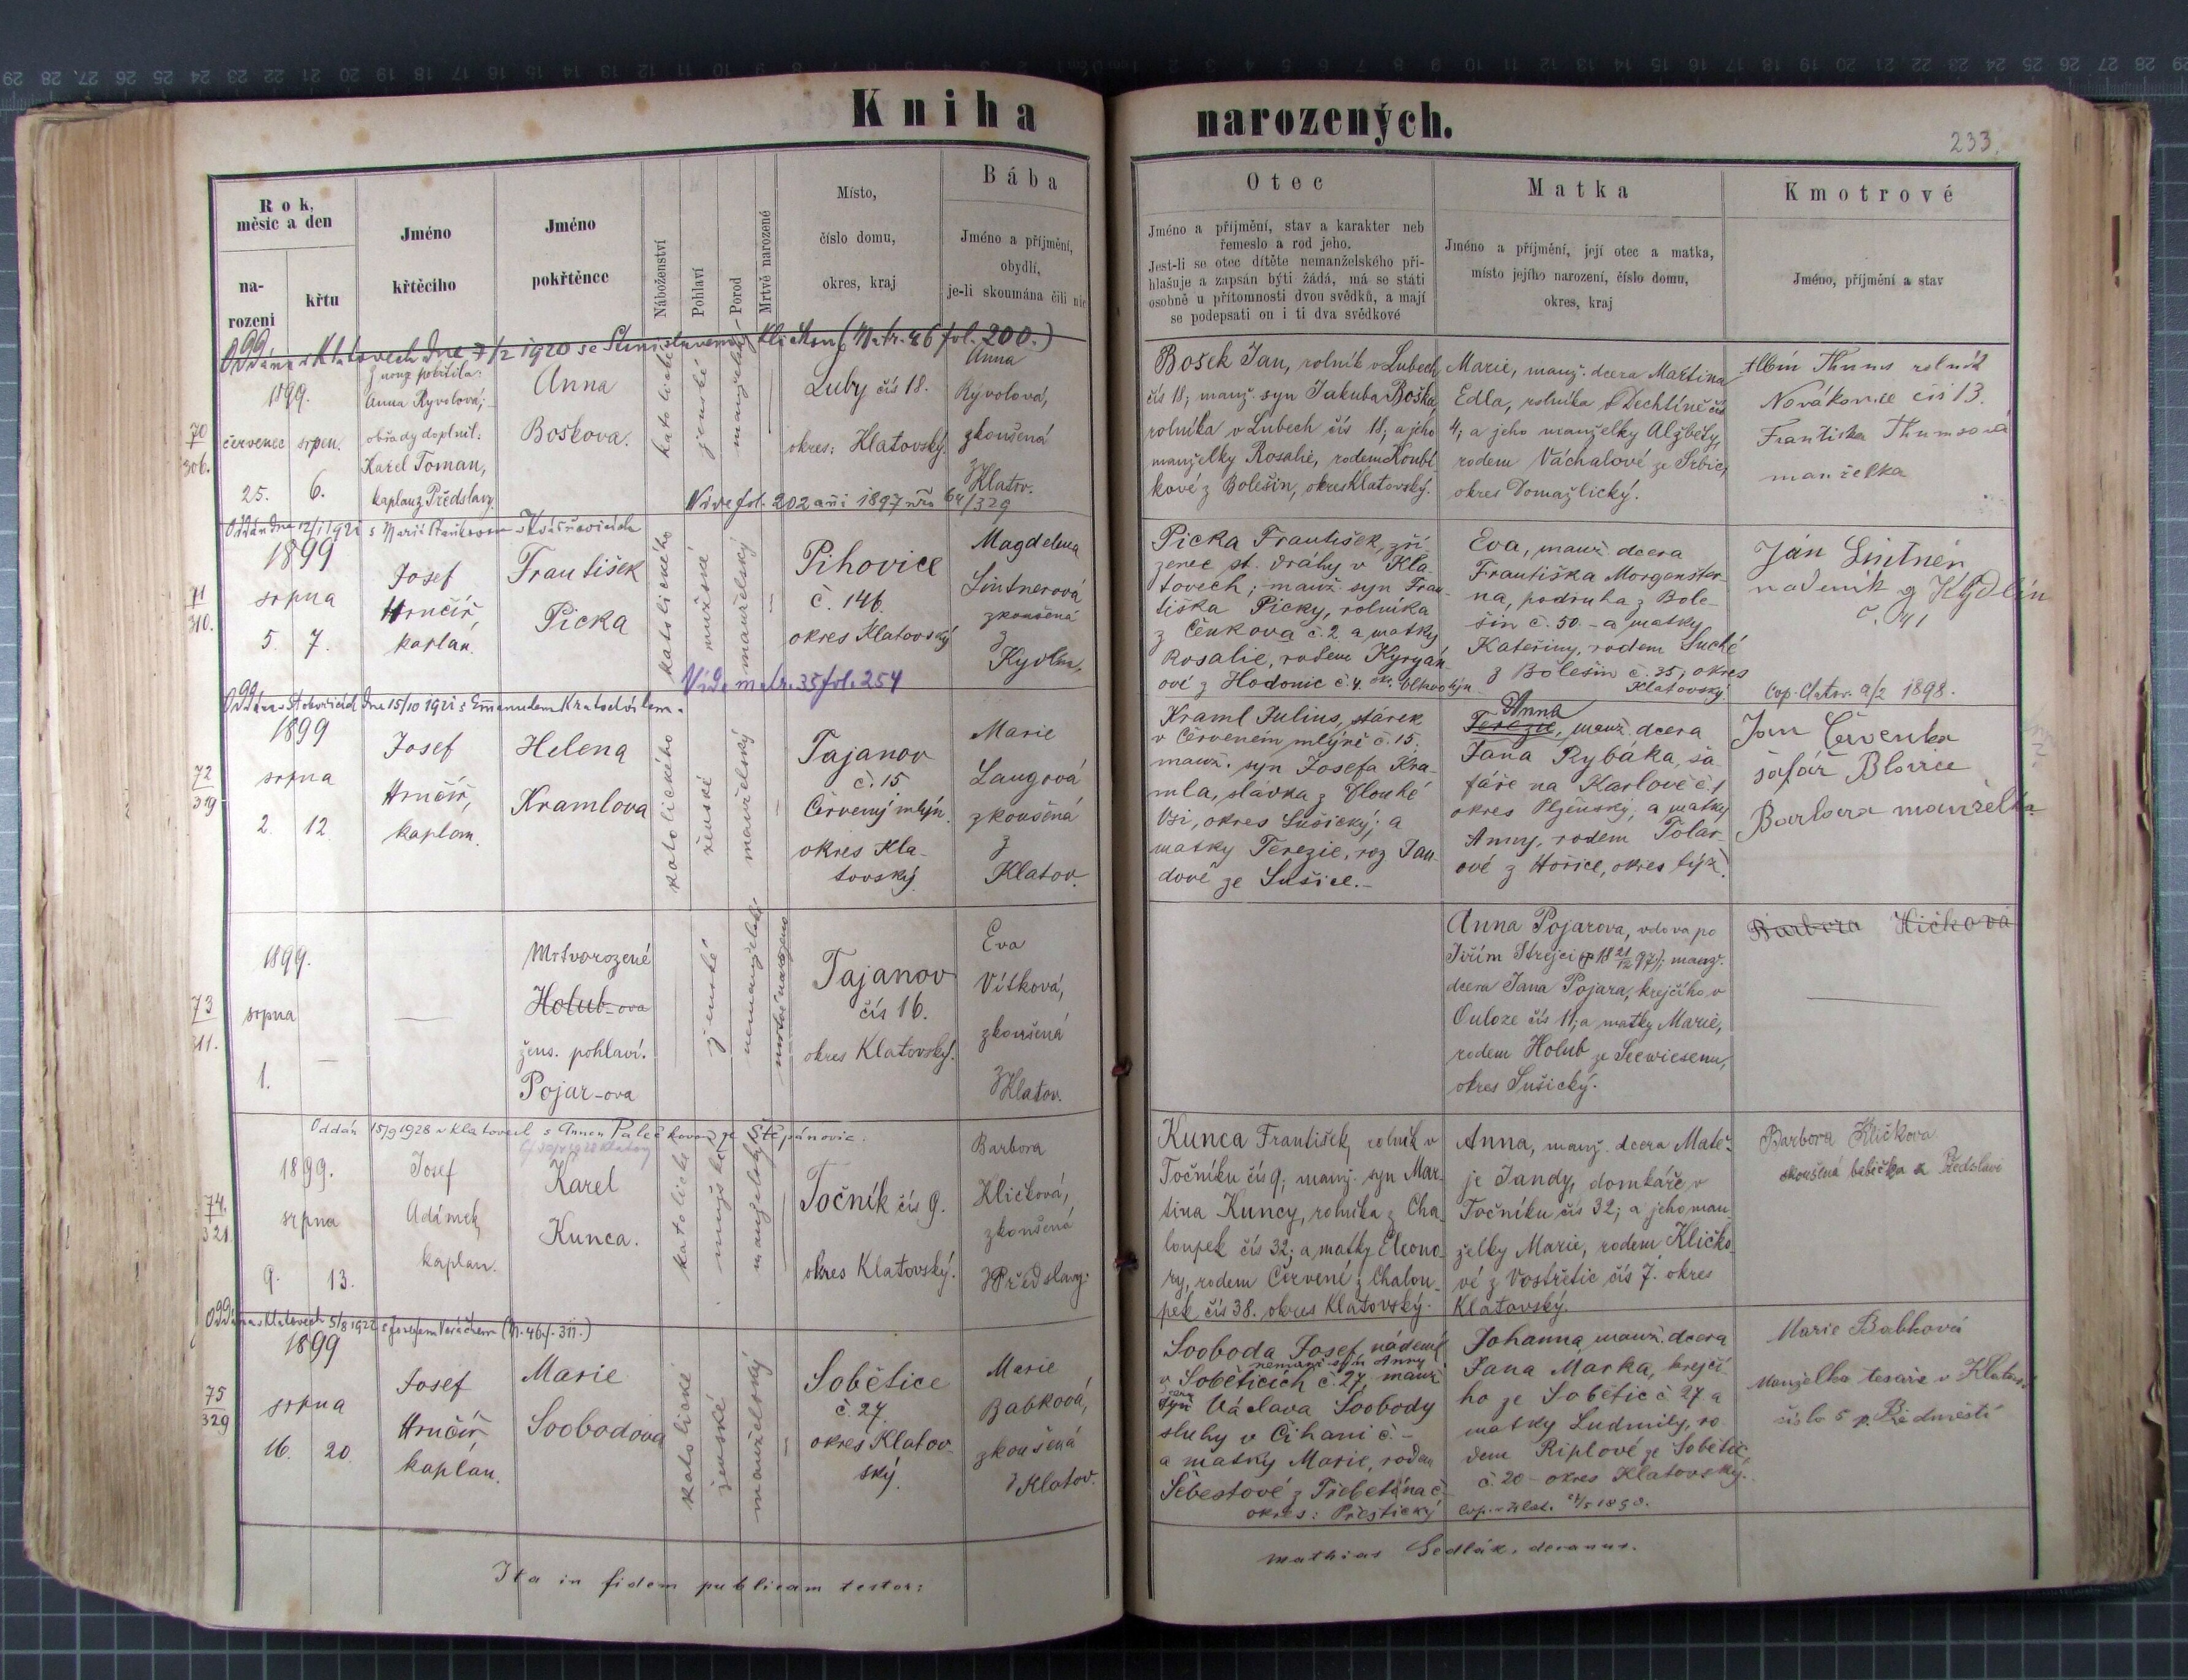 Kniha narozených.
233.
Rok,
měsíc a den
na-
rození
křtu
Jméno
křtěcího
Jméno
pokřtěnce
Náboženství
Pohlaví
Porod
Mrtvě narozené
Místo,
číslo domu,
okres, kraj
Bába
Jméno a příjmění,
obydlí,
je-li skoumána čili nic
Otec
Jméno a příjmění, stav a karakter neb
řemeslo a rod jeho.
Jest-li se otec dítěte nemanželského při-
hlašuje a zapsán býti žádá, má se státi
osobně u přítomnosti dvou svědků, a mají
se podepsati on i ti dva svědkové
Matka
Jméno a příjmění, její otec a matka,
místo jejího narození, číslo domu,
okres, kraj
Kmotrové
Jméno, příjmění a stav
Oddána v Klatovech dne 7/2 1920 se Stanislavem Kličkou (Matr. 46 fol. 200.)
70
306.
1899.
červenec srpen.
25. 6.
Z nouze pokřtila:
Anna Ryvolová;
obřady doplnil:
Karel Toman,
kaplan z Předslavi
Anna
Boskova.
katolické
ženské
manželský
Luby čís 18.
okres: Klatovský.
Anna
Ryvolová,
zkoušená
z Klatov.
Vide fol. 202 ani 1897 nro 64/329
Bošek Jan, rolník v Lubech
čís 18; manž. syn Jakuba Boška,
rolníka v Lubech čís 18; a jeho
manželky Rosalie, rodem Koubí-
kové z Bolešin, okres Klatovský.
Marie, manž. dcera Martina
Edla, rolníka v Dechtíně čís
4; a jeho manželky Alžběty,
rodem Váchalové ze Srbic,
okres Domažlický.
Albín Thums rolník
Novákovice čís 13.
Františka Thumsová
manželka
Oddán dne 12/1 1921 s Marií
71
310.
1899
srpna
5. 7.
Josef
Hrnčíř,
kaplan.
František
Picka
katolického
mužské
manželský
Pihovice
č. 146.
okres Klatovský
Magdelena
Lintnerová
zkoušená
z
Kydlin,
Vide matr. 35 fol. 254
Picka František, zří-
zenec st. dráhy v Kla-
tovech; manž. syn Fran-
tiška Picky, rolníka
z Čenkova č. 2. a matky
Rosalie, rodem Kyrgán-
ové z Hodonic č. 4. okr.
Eva, manž. dcera
Františka Morgenster-
na, podruha z Bole-
šin č. 50. - a matky
Kateřiny, rodem Suché
z Bolešin č. 35, okres
Klatovský.
Ján Lintner
nádeník z Kydlin
č. 41
Cop. Klatov. 9/2 1898.
Oddána dne 15/10 1921 s Emanuelem Kratochvílem.
72
319
1899
srpna
2. 12.
Josef
Hrnčíř,
kaplan.
Helena
Kramlova
katolického
ženské
manželský
Tajanov
č. 15.
Červený mlýn.
okres Kla-
tovský.
Marie
Langová
zkoušená
z
Klatov.
Kraml Julius, stárek
v Červeném mlýně č. 15.
manž. syn Josefa Kra-
mla, slávka z Dlouhé
Vsi, okres Sušický; a
matky Terezie, roz. Jan-
dové ze Sušice. -
Anna
Terezie, manž. dcera
Jana Rybáka, ša-
fáře na Karlově č. 1
okres Plzeňský, a matky
Anny, rodem Tolar-
ové z Hořice, okres týž.
Jan Červenka
šafář Blovice
Barbora manželka
73
311.
1899.
srpna
1.
Mrtvorozené
Holub-ova
žens. pohlaví.
Pojar-ova
ženské
nemanželské
mrtvě narozeno
Tajanov
čís 16.
okres Klatovský.
Eva
Vítková,
zkoušená
z Klatov.
Anna Pojarova, vdova po
Jiřím Strejci († 18 21/12 97); manž.
dcera Jana Pojara, krejčího v
Ouloze čís 11; a matky Marie,
rodem Holub ze Seewiesenu,
okres Sušický.
Barbora Kličková
Oddán 15/9 1928 v Klatovech s Annou Palečkovou ze Štěpánovic.
74.
321.
1899.
srpna
9. 13.
Josef
Adámek,
kaplan.
Karel
Kunca.
katolické
mužské
manželský
Točník čís 9.
okres Klatovský.
Barbora
Kličková,
zkoušená
z Předslavi.
Kunca František, rolník v
Točníku čís 9; manž. syn Mar-
tina Kuncy, rolníka z Cha-
loupek čís 32; a matky Eleono-
ry, rodem Červené z Chalou-
pek čís 38. okres Klatovský.
Anna, manž. dcera Matě-
je Jandy, domkáře v
Točníku čís 32; a jeho man-
želky Marie, rodem Kličko-
vé z Vostřetic čís 7. okres
Klatovský.
Barbora Kličkova
skoušená babička z Předslavi
Oddána v Klatovech 5/8 1922 s Josefem Voráčkem (M. 46 f. 311.)
75
329
1899
srpna
16. 20.
Josef
Hrnčíř
kaplán.
Marie
Svobodova
katolické
ženské
manželský
Sobětice
č. 27.
okres Klatov-
ský.
Marie
Babková,
zkoušená
z Klatov.
Svoboda Josef, nádeník
nemanž. syn Anny
v Soběticích č. 27, manž.
syn Václava Svobody
sluhy v Čihani č. -
a matky Marie, rodem
Šebestové z Třebetína č
okres: Přeštický
Johanna, manž. dcera
Jana Marka, krejčí-
ho ze Sobětic č 27 a
matky Ludmily, ro-
dem Riplové ze Sobětic
č. 20 - okres Klatovský.
Marie Babková
Manželka tesaře v Klatov.
číslo 5 p. Předměstí
Ita in fidem publicam testor:
Mathias Sedlák, decanus.